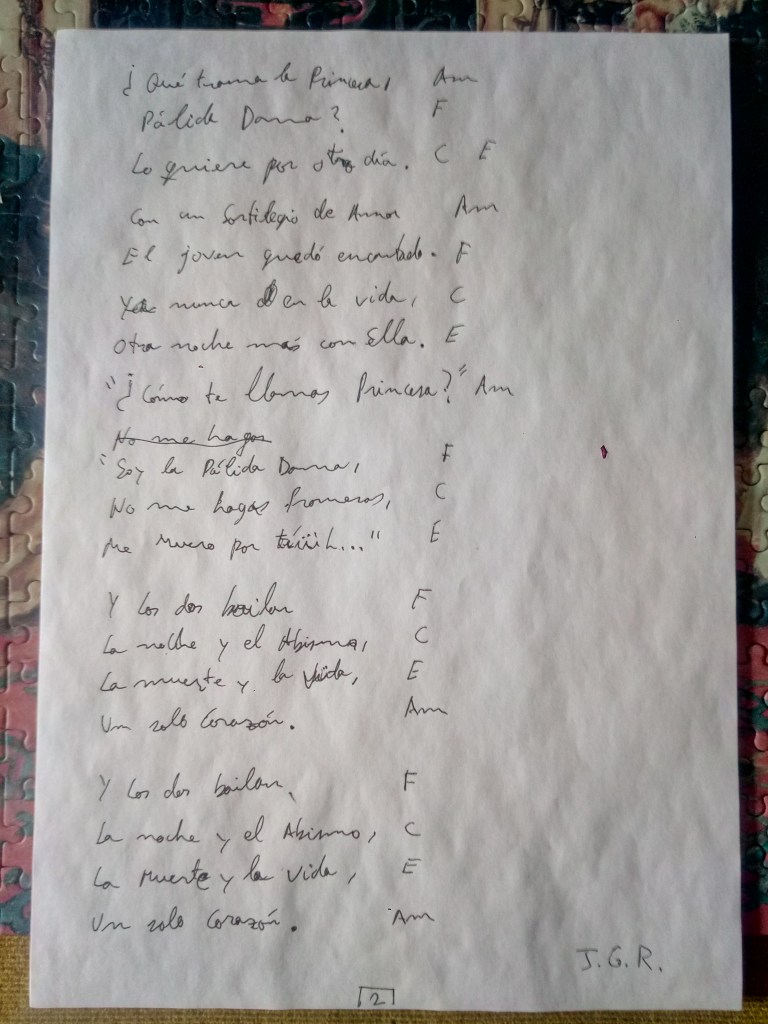 ¿Qué trama la Princesa, Am
Pálida Dama? F
Lo quiere por otro día. C E
Con un Sortilegio de Amor Am
El joven quedó encantado. F
Ya nunca en la vida, C
Otra noche más con Ella. E
"¿Cómo te llamas Princesa?" Am
No me hagas
"Soy la Pálida Dama, F
No me hagas promesas, C
Me Muero por tíiiih..." E
Y los dos bailan F
La noche y el Abismo, C
La muerte y la vida, E
Un solo Corazón. Am
Y los dos bailan, F
La noche y el Abismo, C
La Muerte y la Vida, E
Un solo Corazón. Am
J.G.R.
2